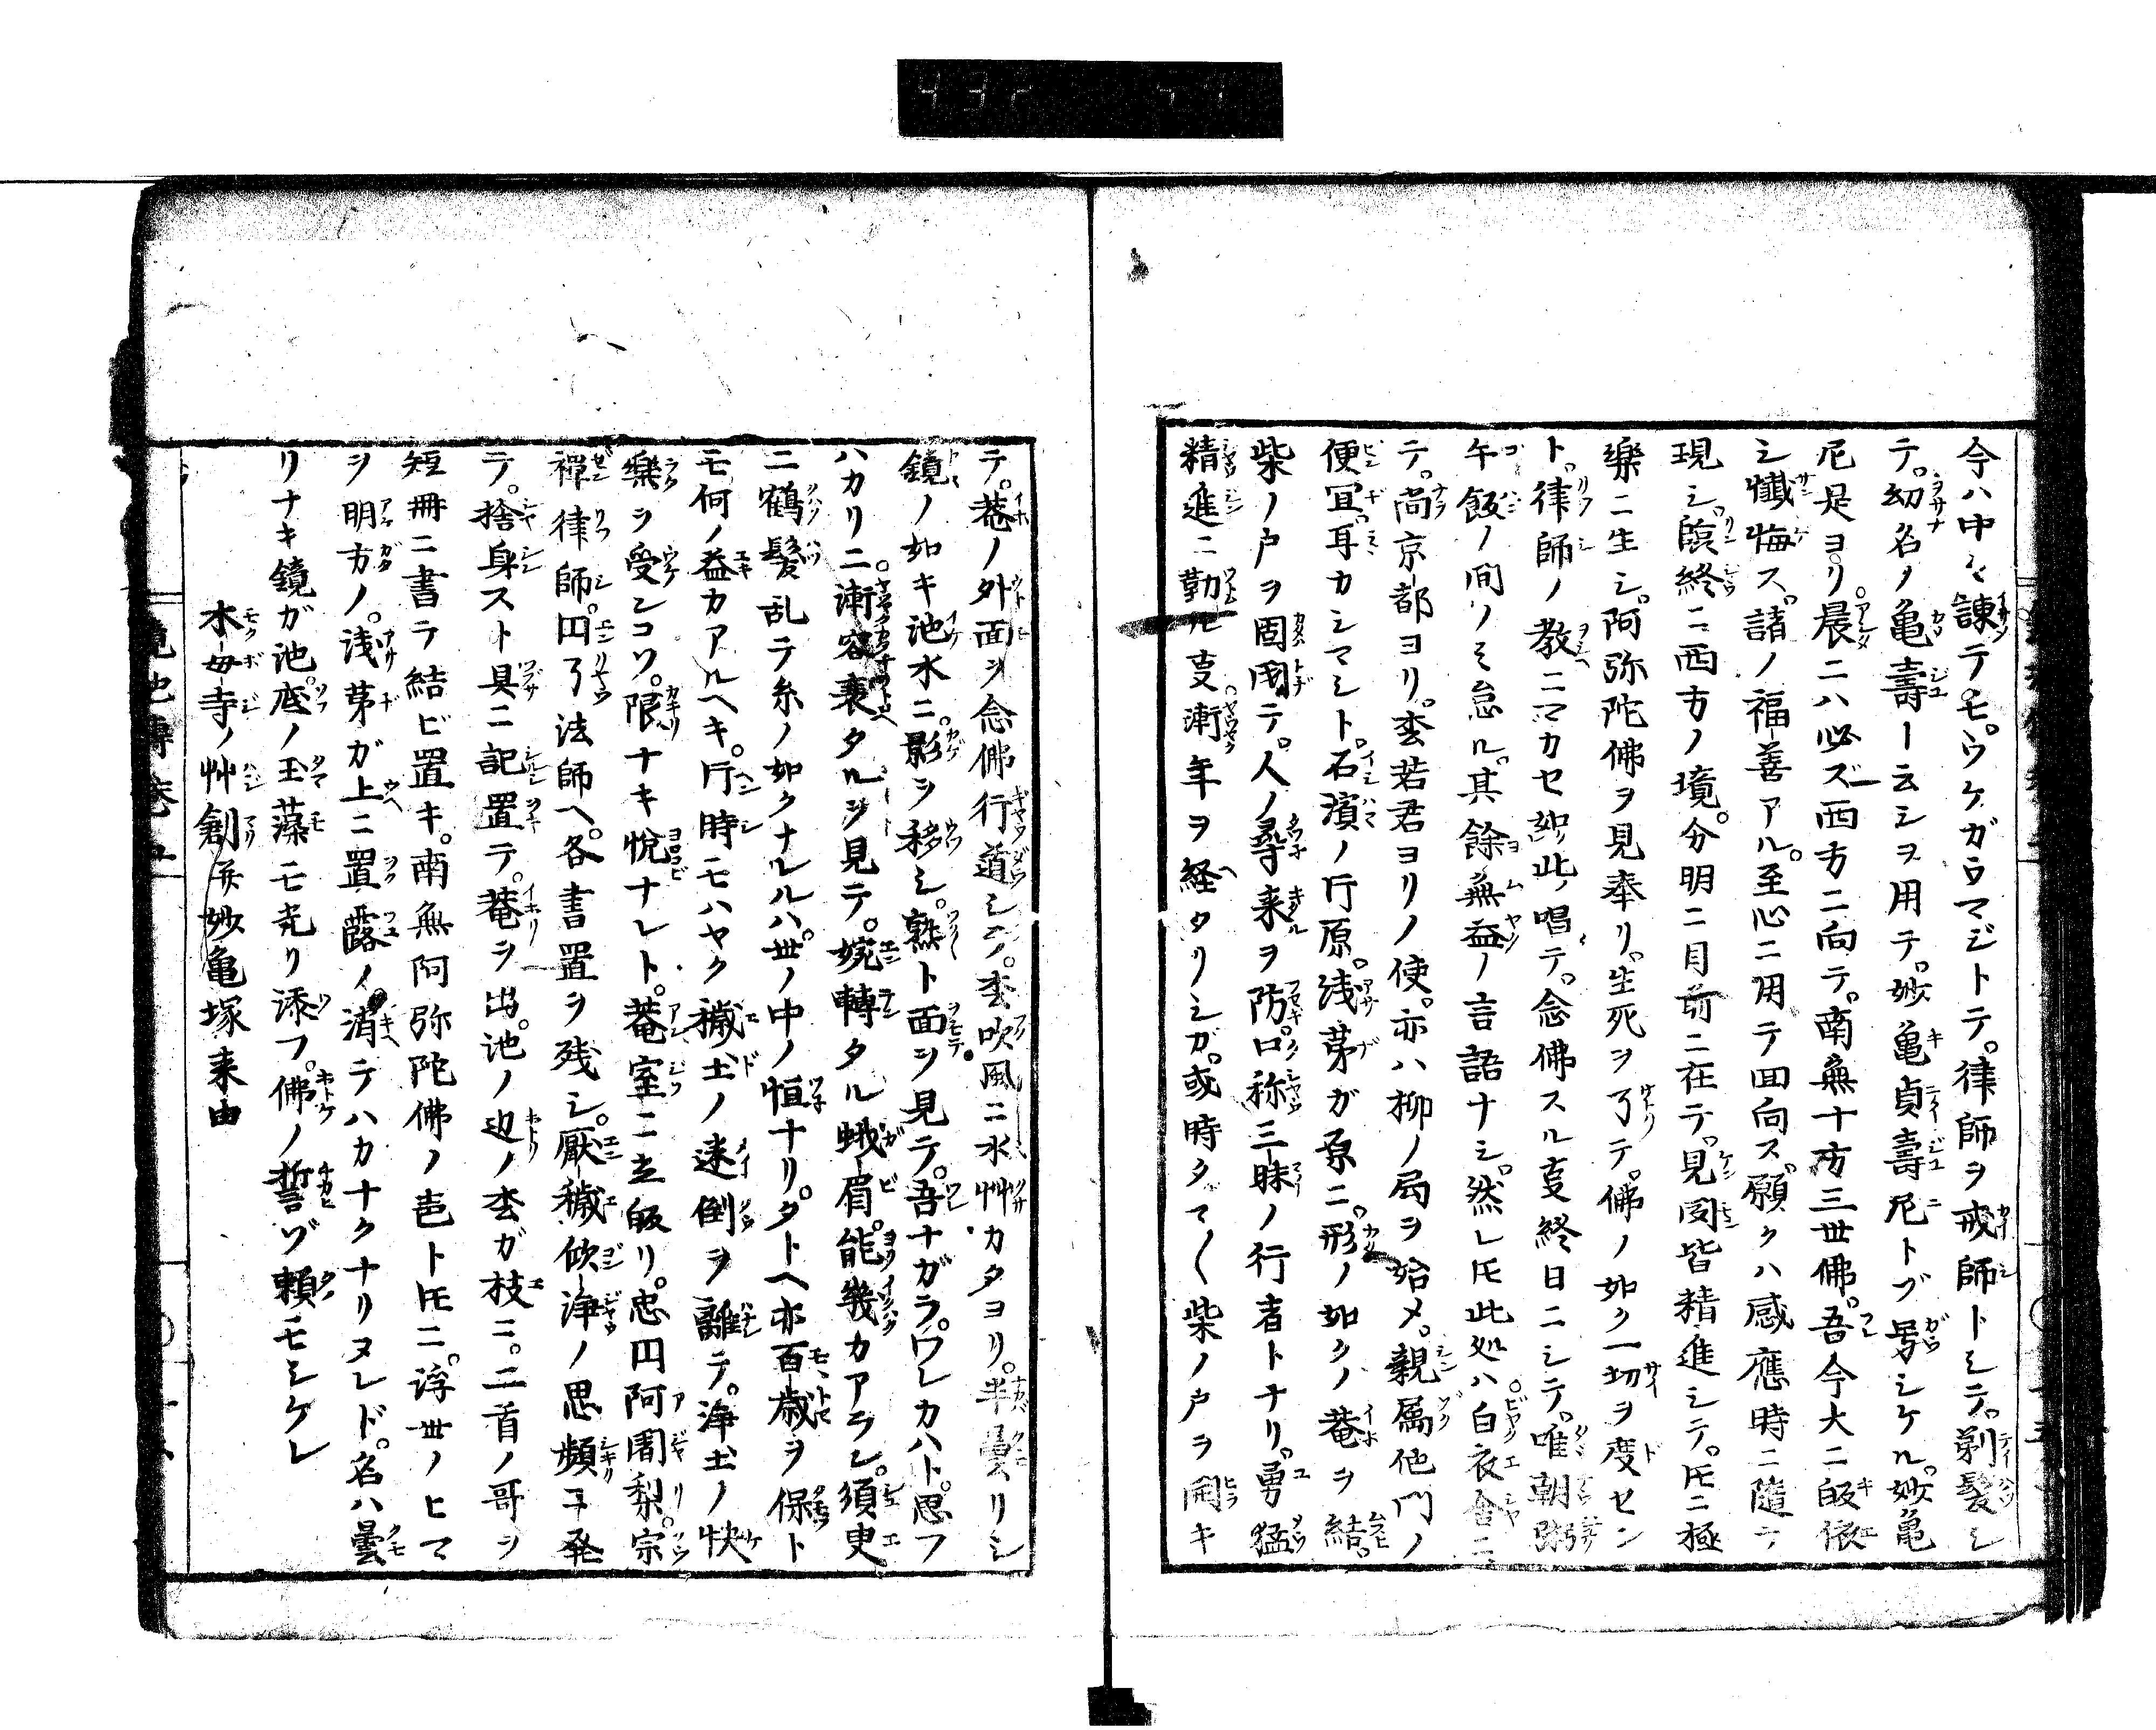 今ハ中〻諫テモ。ウケガウマジトテ。律師ヲ戒師トシテ。剃髪シ
テ。幼名ノ亀壽ト云シヲ用テ。妙亀貞壽尼トゾ号シケル。妙亀
尼是ヨリ晨ニハ必ズ西方ニ向テ。南無十方三世佛。吾今大ニ皈依
シ懺悔ス。諸ノ福善アル。至心ニ用テ回向ス。願クハ感應時ニ隨テ
現シ。臨終ニ西方ノ境。分明ニ目前ニ在テ。見聞皆精進シテ。トモニ極
樂ニ生シ。阿弥陀佛ヲ見奉リ。生死ヲ了テ。佛ノ如ク一切ヲ度セン
ト。律師ノ教ニマカセ如此唱テ。念佛スル亊終日ニシテ。唯朝粥
午飯ノ間ノミ怠ル。其餘無益ノ言語ナシ。然レトモ此処ハ白衣舍ニ
テ。尚京都ヨリ。松若君ヨリノ使。亦ハ柳ノ局ヲ始メ。親属他門ノ
便冝。耳カシマシト。石濱ノ片原。浅茅ガ原ニ。形ノ如クノ菴ヲ結。
柴ノ戸ヲ固閉テ。人ノ尋来ヲ防。口称三昧ノ行者トナリ。勇猛
精進ニ勤ル亊漸年ヲ経タリシガ。或時タマ〱柴ノ戸ヲ開キ
テ。菴ノ外面ヲ念佛行道シテ。松吹風ニ水艸カタヨリ。半曇リシ
鏡ノ如キ池水ニ。影ヲ移シ。熟ト面ヲ見テ。吾ナガラ。ワレカハト。思フ
ハカリニ。漸容衰タルヲ見テ。婉轉タル蛾眉。能幾カアラン。須臾
ニ鶴髪乱テ糸ノ如クナルハ。世ノ中ノ恒ナリ。タトヘ亦百歳ヲ保ト
モ何ノ益カアルヘキ。片時モハヤク穢土ノ迷倒ヲ離テ。浄土ノ快
樂ヲ受ンコソ。限ナキ悦ナレト。菴室ニ立皈リ。忠円阿闍梨。宗
禪律師。円了法師ヘ。各書置ヲ残シ。厭穢欣浄ノ思頻ニ発
テ。捨身スト具ニ記置テ。菴ヲ出。池ノ辺ノ松ガ枝ニ。二首ノ哥ヲ
短冊ニ書テ結ビ置キ。南無阿弥陀佛ノ声トトモニ。浮世ノヒマ
ヲ明方ノ。浅茅ガ上ニ置露ノ。消テハカナクナリヌレド。名ハ曇
リナキ鏡ガ池。底ノ玉藻モ光リ添フ。佛ノ誓ゾ頼モシケレ
木母寺ノ艸創并妙亀塚来由